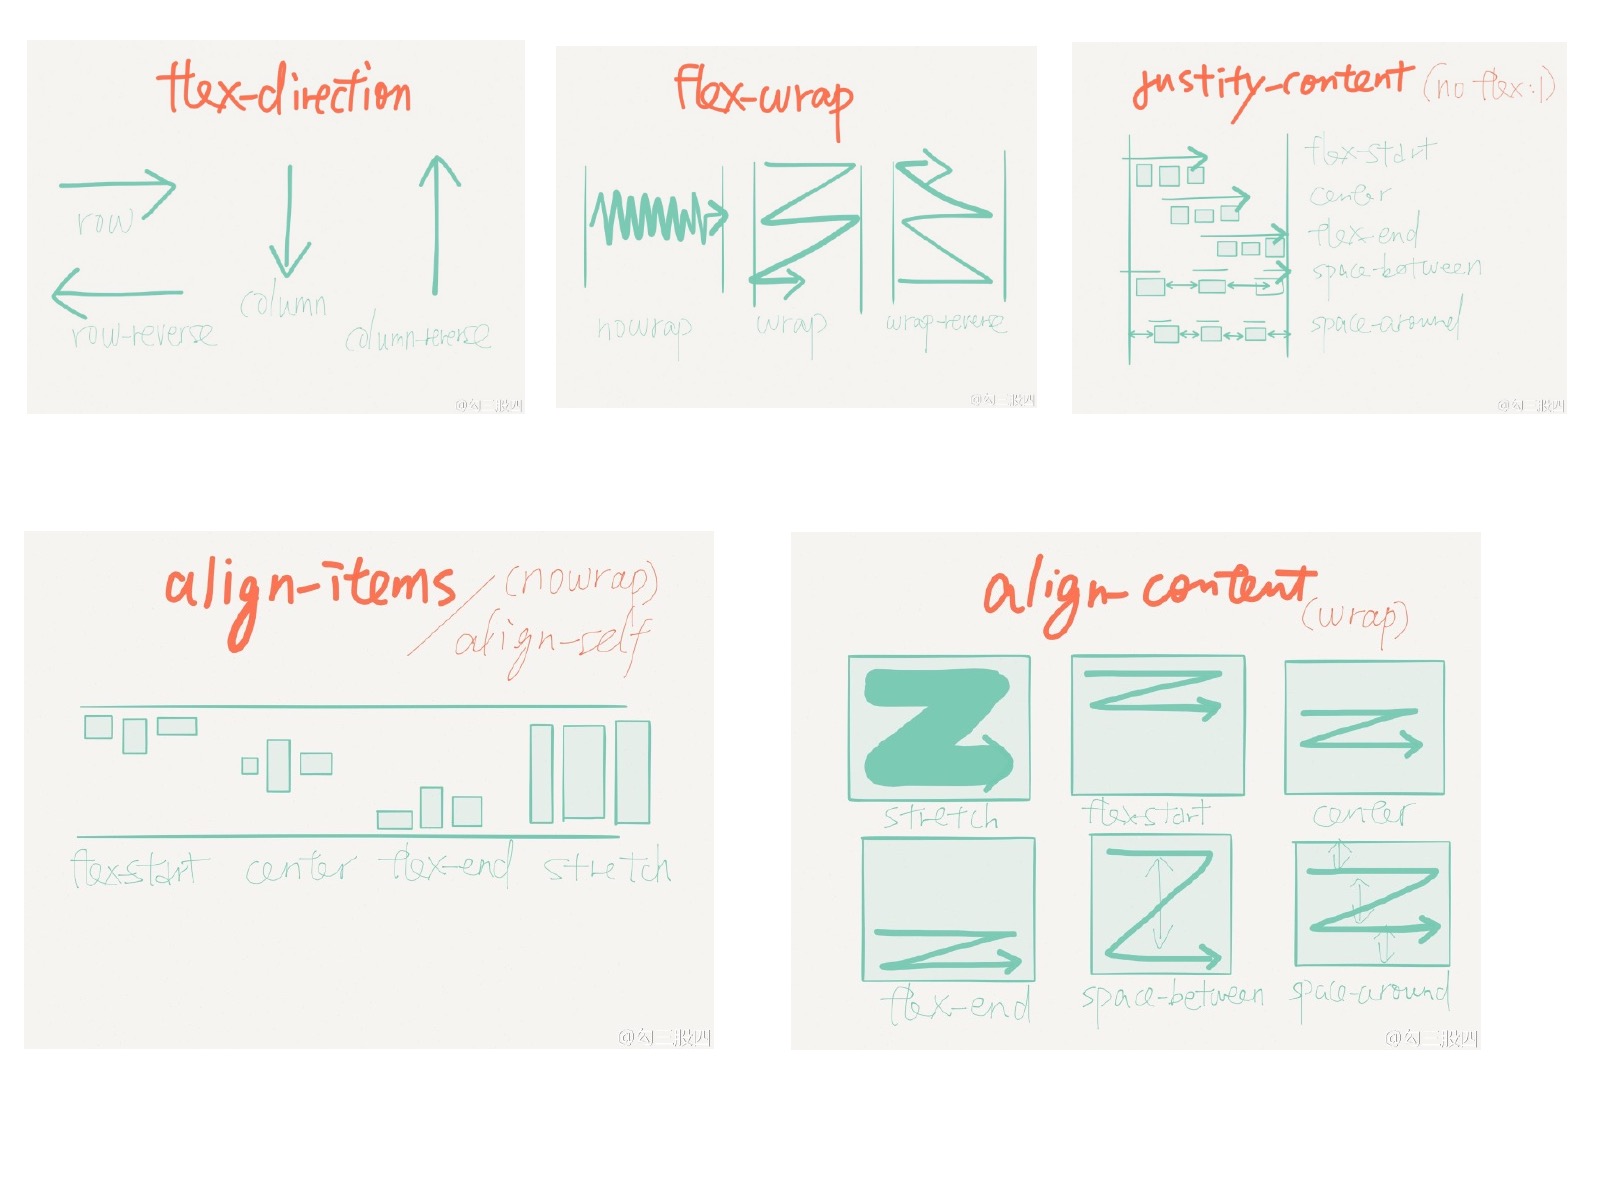 flex-direction
row
column
row-reverse
column-reverse
flex-wrap
nowrap
wrap
wrap-reverse
justify-content (no flex:1)
flex-start
center
flex-end
space-between
space-around
align-items (nowrap)
align-self
flex-start center flex-end stretch
align-content
(wrap)
stretch flex-start center
flex-end space-between space-around